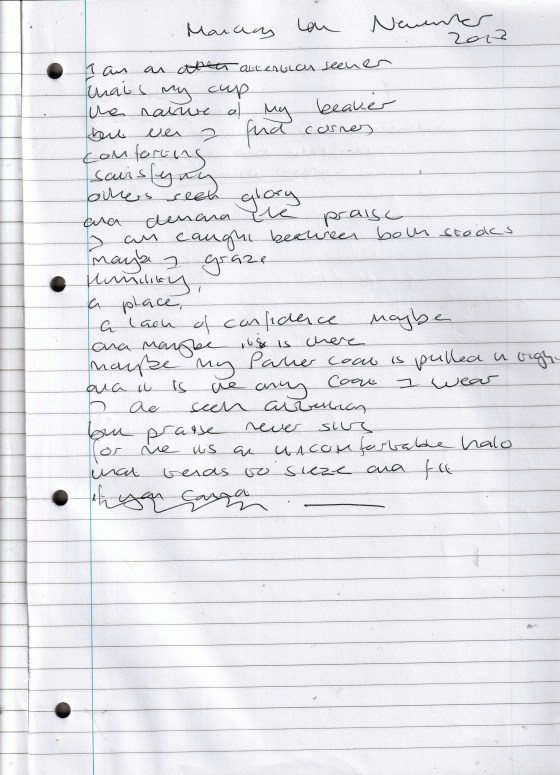 Monday 
November
2012
I am an attention seeker
that's my cup
the nature of my beaker
but even I find corners
comforting
satisfying
others seek glory
and demand the praise
I am caught between both stools
maybe I graze
Humility,
a place,
a lack of confidence maybe
and maybe its is there
maybe my Parker coat is pulled in tight
and it is the only coat I wear
I do seek attention
but praise never sits
for me its an uncomfortable halo
that tends to sieze and fit
if you